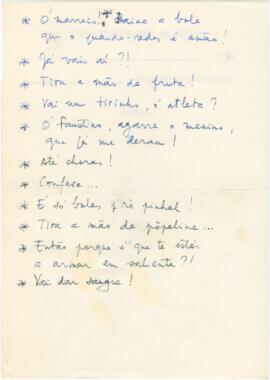 * Ó marreco! Baixa a bola
que o guarda-redes é anão!
* Já vais aí?!
* Tira a mão da fruta!
* Vai um tirinho, ó atleta?
* Ó Faustino, agarra o menino,
que já me deram!
* Até choras!
* Confere...
* E só bolas p'rò pinhal!
* Tira a mão da pòpeline...
* Então porque é que te estás
a armar em saliente?!
* Vai dar sangue!